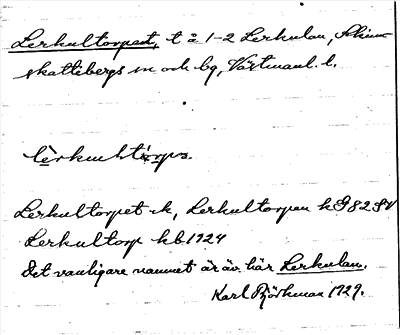 Lerkultorpet, t å 1-2 Lerkulan, Skinn-
skattebergs sn och bg, Västmanl. l.
Lerkultorpet -k, Lerkultorpen k
Lerkultorp kb 1924
Det vanligare namnet är äv. här Lerkulan.
Karl Björkman 1929.